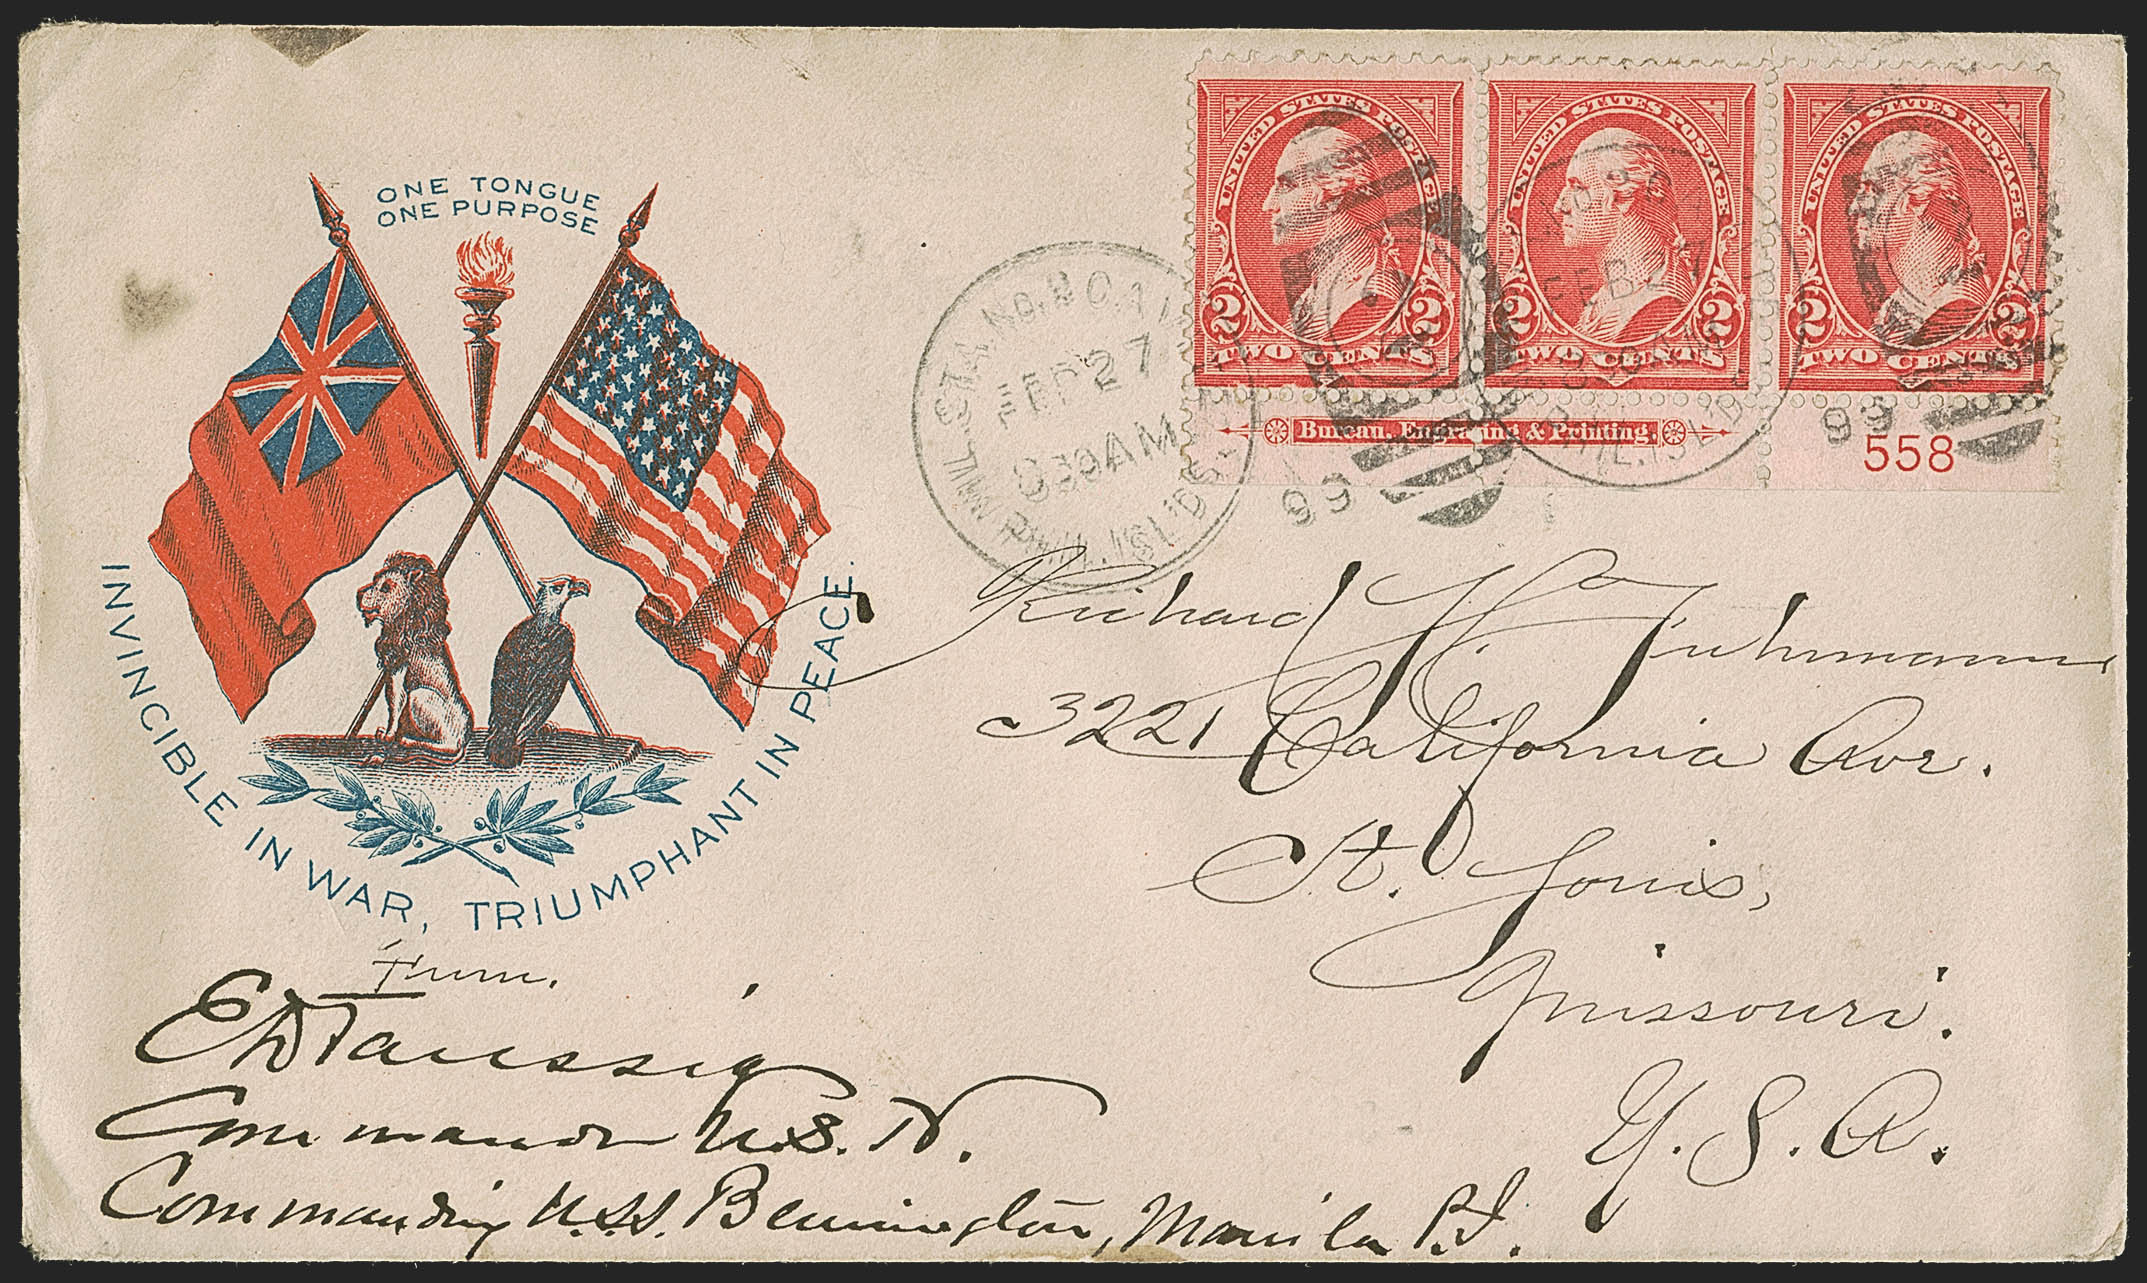 ONE TONGUE
ONE PURPOSE
INVINCIBLE IN WAR, TRIUMPHANT IN PEACE.
UNITED STATES POSTAGE
2 2
TWO CENTS
UNITED STATES POSTAGE
2 2
TWO CENTS
UNITED STATES POSTAGE
2 2
TWO CENTS
Bureau, Engraving & Printing.
558
MIL. STA. No.
FEB 27
830 AM
PHIL. ISL'DS.
99
FEB 27
PHIL. ISL'DS
99
Richard H. Fuhrmann
3221 California Ave.
St. Louis,
Missouri.
U. S. A.
From.
E D Taussig
Commander U.S.N.
Commanding U.S.S. Bennington, Manila P.I.